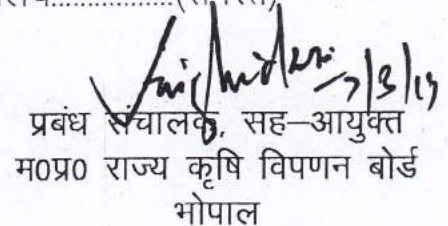 7/3/19
प्रबंध संचालक, सह–आयुक्त
म0प्र0 राज्य कृषि विपणन बोर्ड
भोपाल